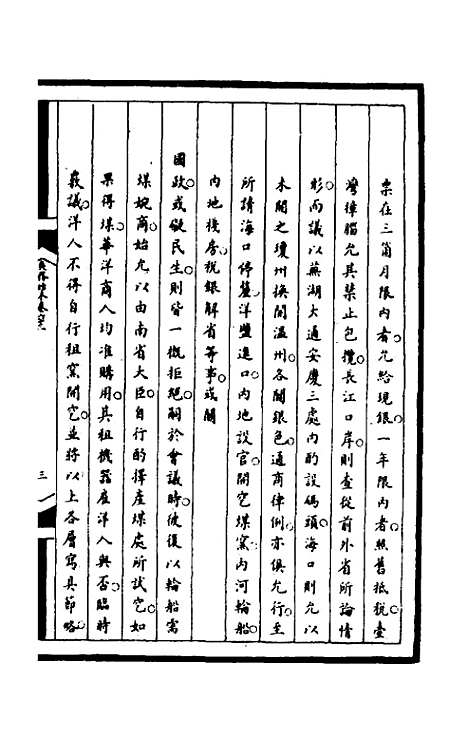 票在三箇月限內者允給現銀一年限內者照舊抵稅臺
灣樟腦允其禁止包攬長江口岸則查從前外省所論情
形而議以蕪湖大通安慶三處內酌設碼頭海口則允以
未開之瓊州換開溫州各關銀色通商律例亦俱允行至
所請海口停釐洋鹽進口內地設官開窆煤窯內河輪船
內地棧房稅銀解省等事或關
國政或礙民生則皆一概拒絕嗣於會議時彼復以輪船需
煤婉商始允以由南省大臣自行酌擇產煤處所試窆如
果得煤華洋商人均准購用其租機器雇洋人與否臨時
嚴議洋人不得自行租窯開窆並將以上各層寫具節略
三